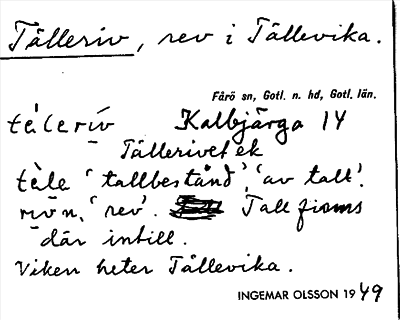 Tälleriv, rev i Tällevika.
Fårö sn, Gotl. n. hd, Gotl. län.
tèleriv Kalbjärga 14
Tällerivet ek
tèle 'tallbestånd', 'av tall'.
riv n. 'rev'. Tall finns
där intill.
Viken heter Tällevika.
INGEMAR OLSSON 1949